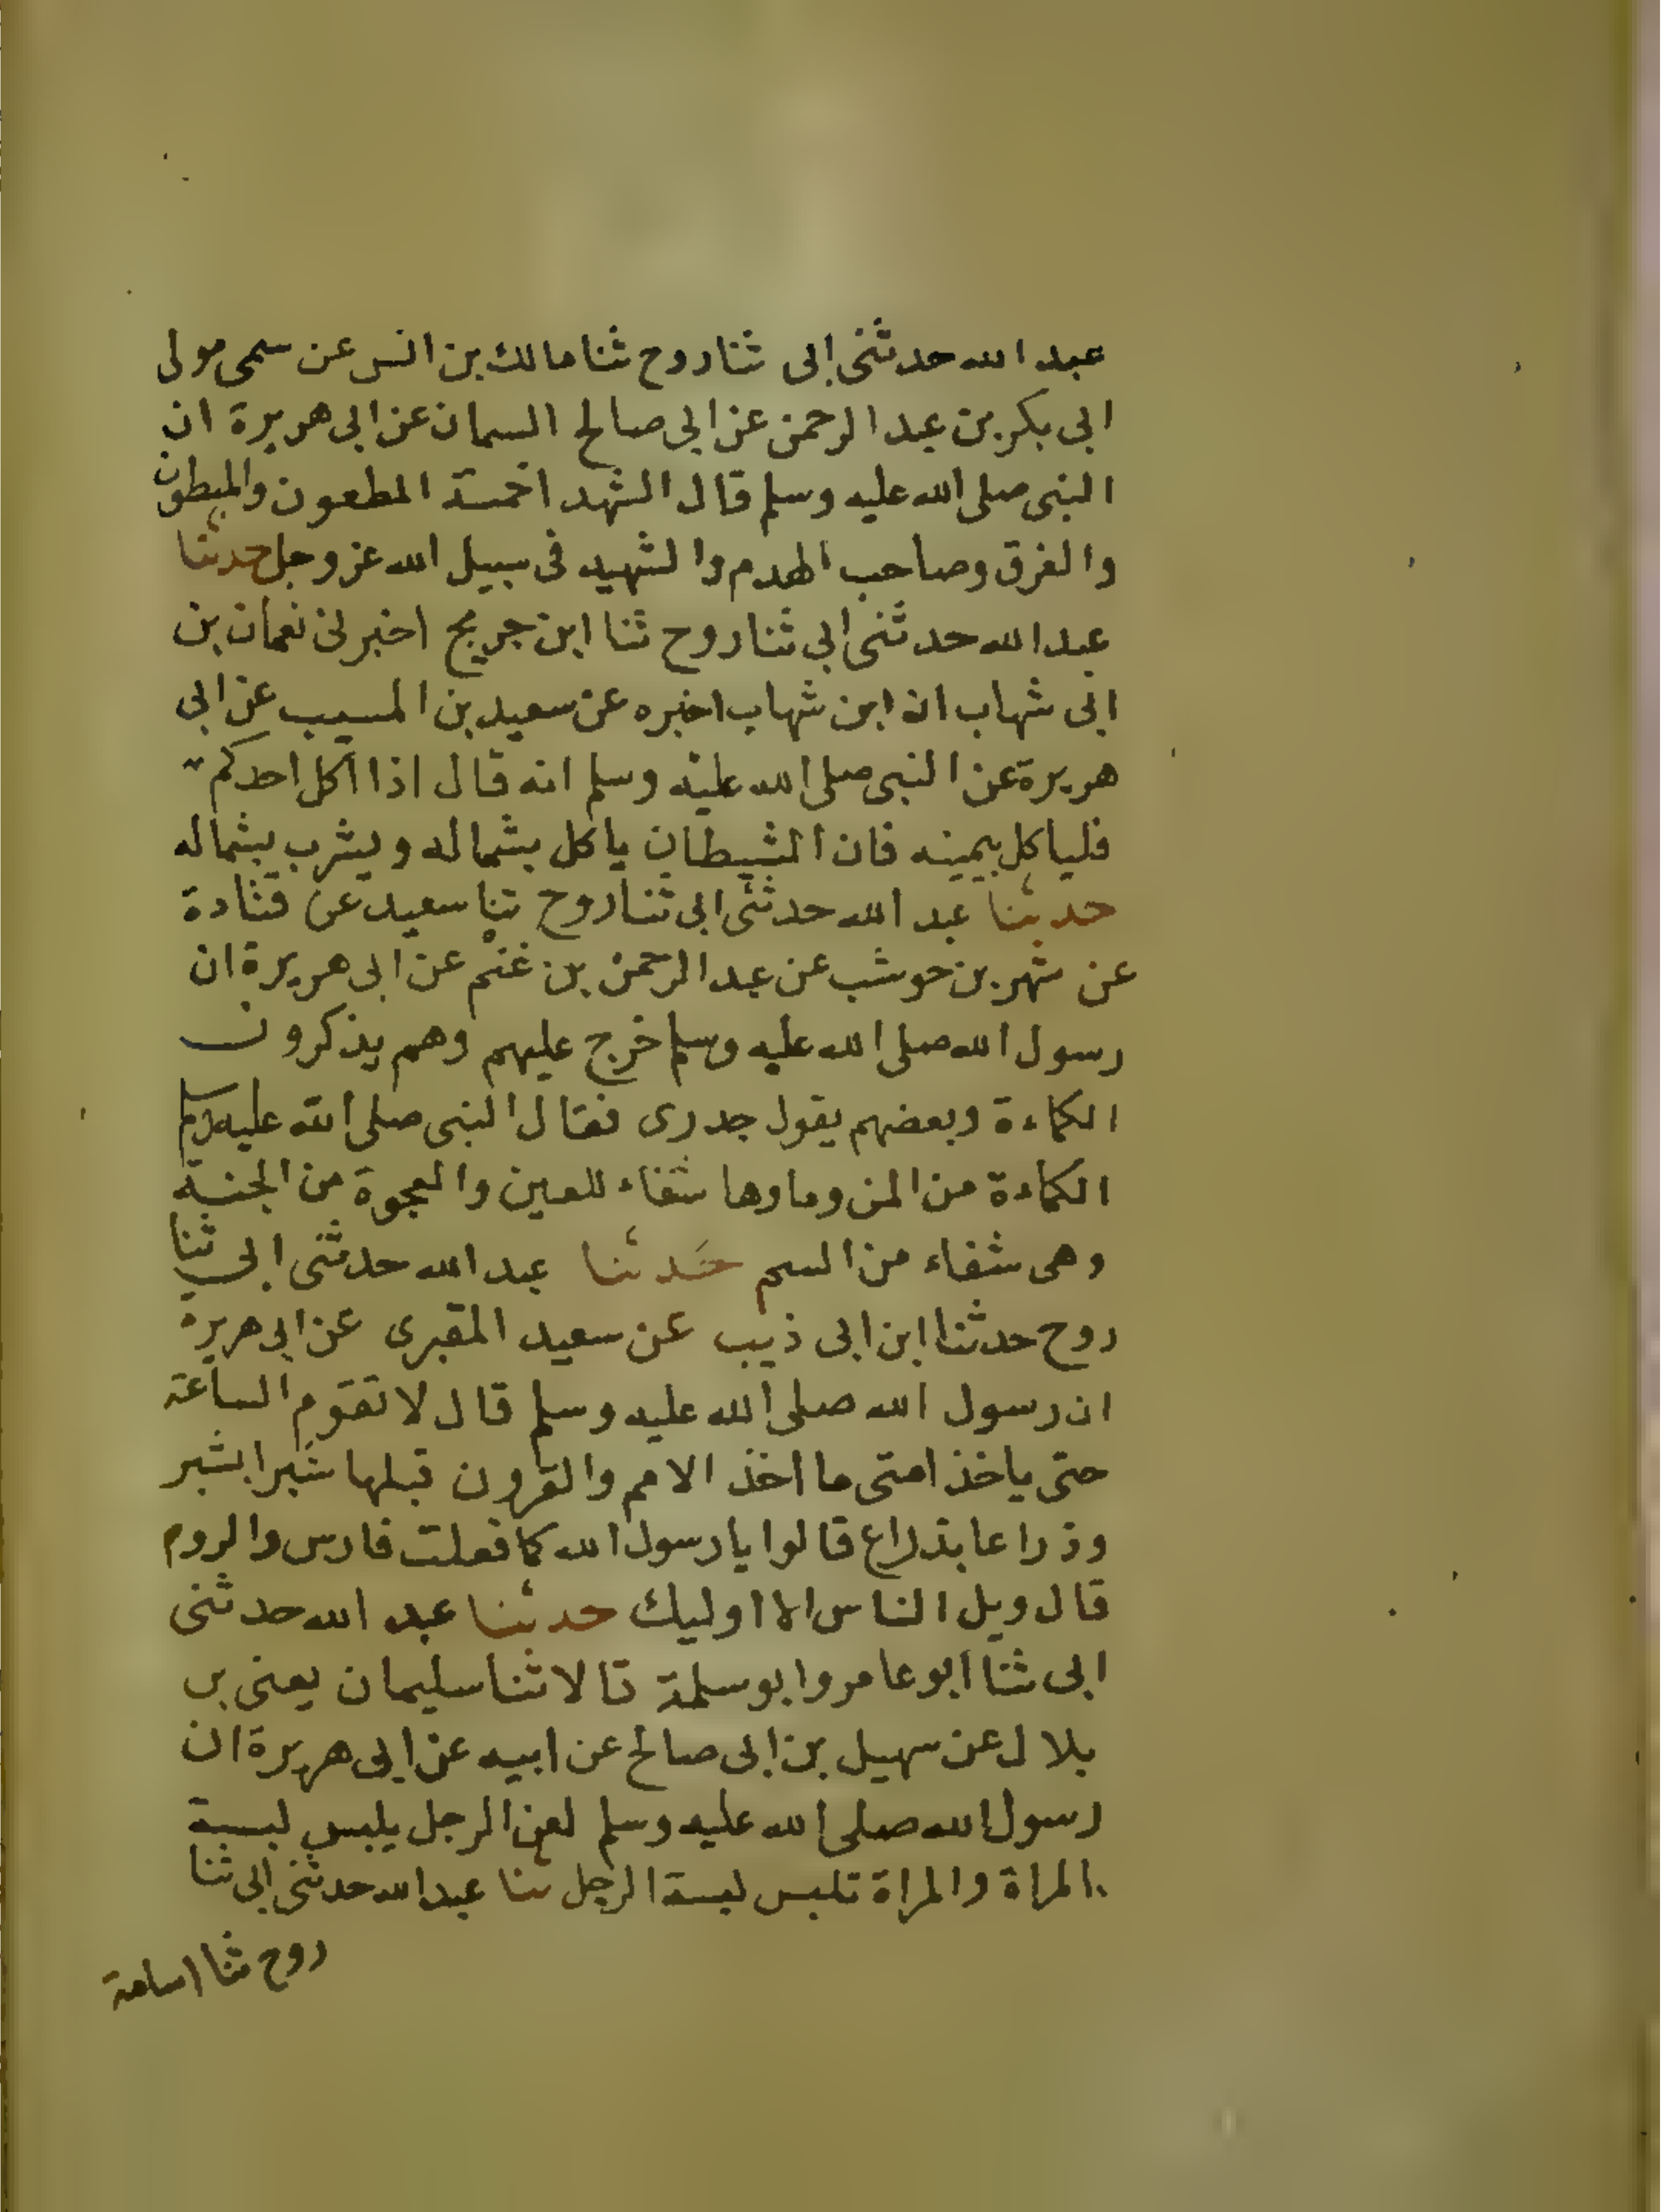 عبد الله حدثنى ابى ثنا روح ثنا مالك بن انس عن سمى مولى
ابى بكر بن عبد الرحمن عن ابى صالح السمان عن ابى هريرة ان
النبى صلى الله عليه وسلم قال الشهدا خمسة المطعون والمبطون
والغرق وصاحب الهدم والشهيد فى سبيل الله عز وجل حدثنا
عبد الله حدثنى ابى ثنا روح ثنا ابن جريج اخبرنى نعمان بن
ابى شهاب ان ابن شهاب اخبره عن سعيد بن المسيب عن ابى
هريرة عن النبى صلى الله عليه وسلم انه قال اذا اكل احدكم
فلياكل بيمينه فان الشيطان ياكل بشماله ويشرب بشماله
حدثنا عبد الله حدثنى ابى ثنا روح ثنا سعيد عن قتادة
عن شهر بن حوشب عن عبد الرحمن بن غنم عن ابى هريرة ان
رسول الله صلى الله عليه وسلم خرج عليهم وهم يذكرون
الكماءة وبعضهم يقول جدرى فقال النبى صلى الله عليه وسلم
الكماءة من المن وماوها شفاء للعين والعجوة من الجنة
وهى شفاء من السم حَدثنا عبد الله حدثنى ابى ثنا
روح حدثنا ابن ابى ذيب عن سعيد المقبرى عن ابى هريرة
ان رسول الله صلى الله عليه وسلم قال لا تقوم الساعة
حتى ياخذ امتى ما اخذ الامم والقرون قبلها شبرا بشبر
وذراعا بذراع قالوا يا رسول الله كما فعلت فارس والروم
قال ويل الناس الا اوليك حدثنا عبد الله حدثنى
ابى ثنا ابو عامر وابو سلمة قالا ثنا سليمان يعنى بن
بلال عن سهيل بن ابى صالح عن ابيه عن ابى هريرة ان
رسول الله صلى الله عليه وسلم لعن الرجل يلبس لبسة
المراة والمراة تلبس لبسة الرجل ثنا عبد الله حدثنى ابى ثنا
روح ثنا اسامة